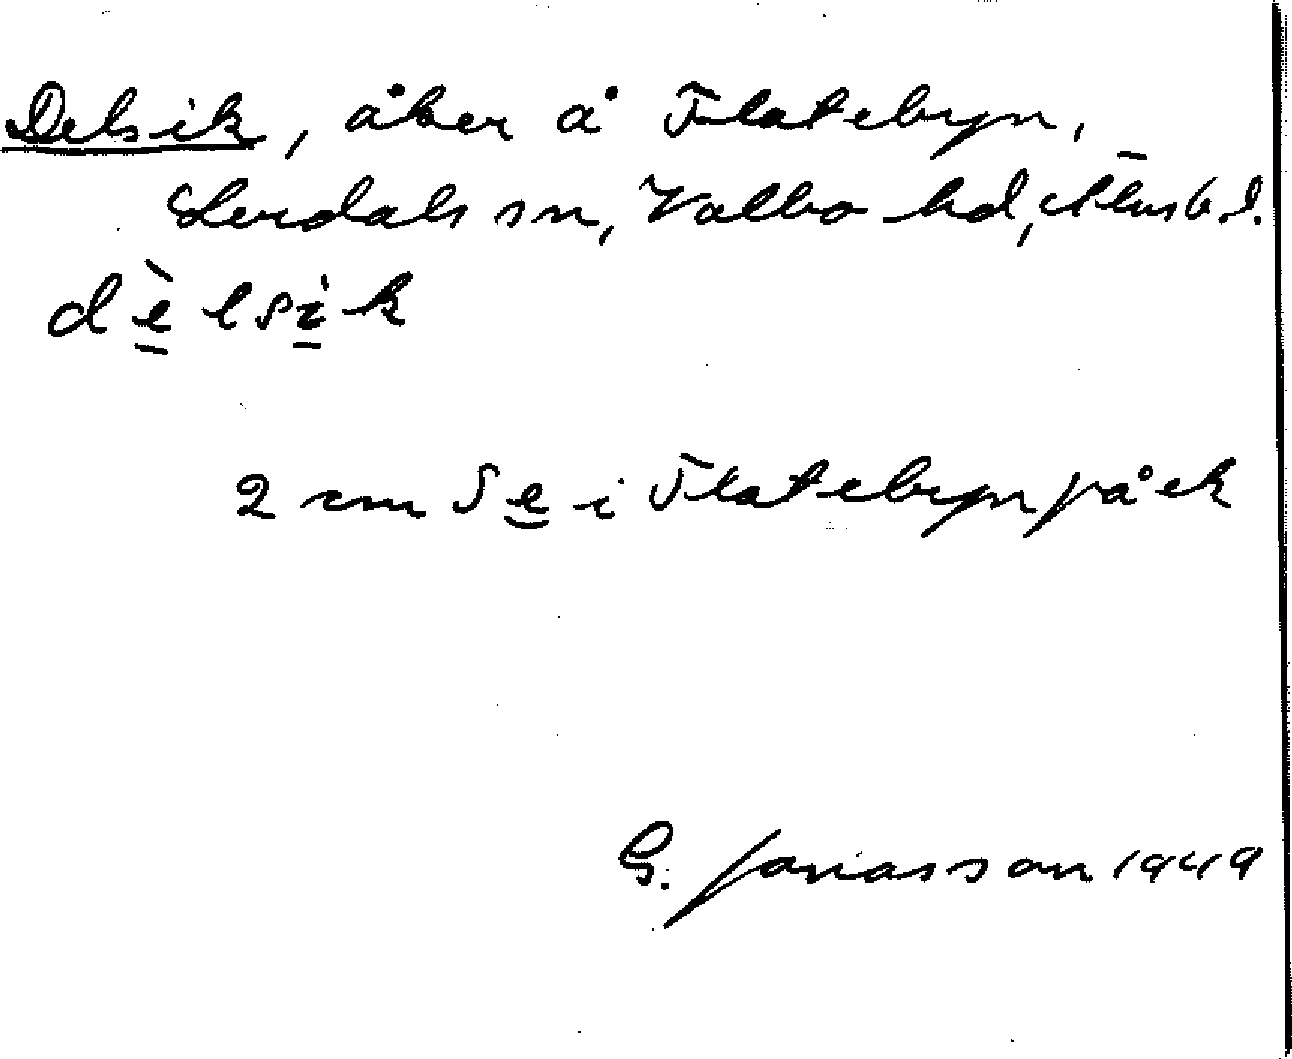 Delsik, åker å Flatebyn,
Lerdals sn, Valbo hd, Älvsb. l.
dèlsik
2 cm S e i Flatebyn på ek
G. Jonasson 1949